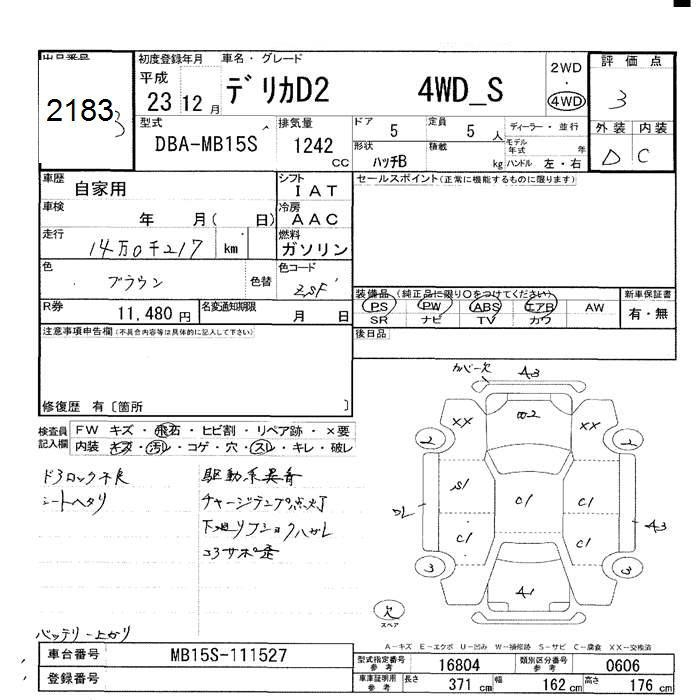 出品番号 初度登録年月 車名・グレード 2WD 評価点
2183 平成 デリカD2 4WD_S ・ 3
3 23 12 月 4WD
型式 排気量 ドア 定員 ディーラー・並行 外装 内装
DBA-MB15S 1242 CC 5 5 人 モデル年式 年 D C
形状 積載
ハッチB kg ハンドル 左・右
車歴 自家用 シフト IAT セールスポイント(正常に機能するものに限ります)
車検 年 月( 日) 冷房 AAC
走行 14万0千217 km 燃料 ガソリン
色 ブラウン 色替 色コード ZSF
装備品(純正品に限り○をつけてください) 新車保証書
R券 11,480 円 名変通知期限 月 日 PS PW ABS エアB AW 有・無
SR ナビ TV カワ
注意事項申告欄(不具合内容等は具体的に記入して下さい) 後日品
修復歴 有〔箇所 〕
検査員記入欄 FW キズ・飛石・ヒビ割・リペア跡・×要
内装 キズ・汚レ・コゲ・穴・スレ・キレ・破レ
ドアロック不良 駆動系異音
シートヘタリ チャージランプ点灯
下廻リフショクハガレ
コアサポ歪
バッテリー上がり
カバー欠 A3
XX XX
2 2
S1 C1
DL C1 C1 C1 A3
3 3
A1
欠
スペア
A-キズ E-エクボ U-凹み W-補修跡 S-サビ C-腐食 XX-交換済
車台番号 MB15S-111527 型式指定番号 参考 16804 類別区分番号 参考 0606
登録番号 車庫証明用 参考 長さ 371 cm 幅 162 cm 高さ 176 cm